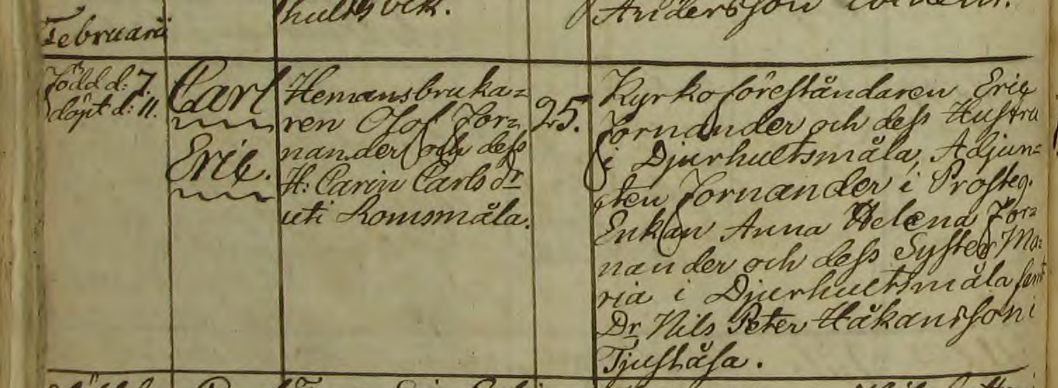 hultsvik.
Andersson
Februarii
född d: 7.
döpt d: 11.
Carl
Eric.
Hemansbruka=
ren Olof For=
nander och dess
H: Carin Carls dr
uti Romsmåla.
25.
Kyrkoföreståndaren Eric
Fornander och dess Hustru
i Djurhultsmåla, Adjun=
cten Fornander i Prosteg.
Enkan Anna Helena For=
nander och dess Syster Ma=
ria i Djurhultsmåla samt
Dr. Nils Peter Håkansson i
Tjuståsa.